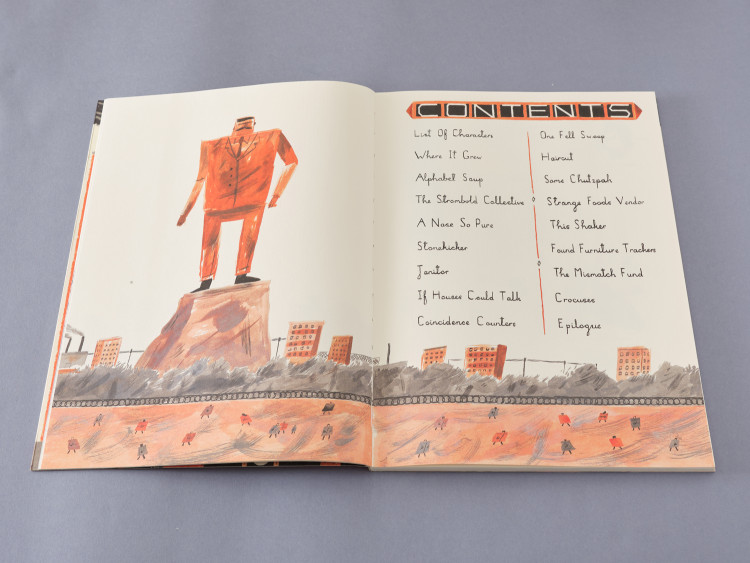 CONTENTS
List Of Characters
Where It Grew
Alphabet Soup
The Strombold Collective
A Nose So Pure
Stonekicker
Janitor
If Houses Could Talk
Coincidence Counters
One Fell Swoop
Haircut
Some Chutzpah
Strange Foods Vendor
This Shaker
Found Furniture Trackers
The Mismatch Fund
Crocuses
Epilogue